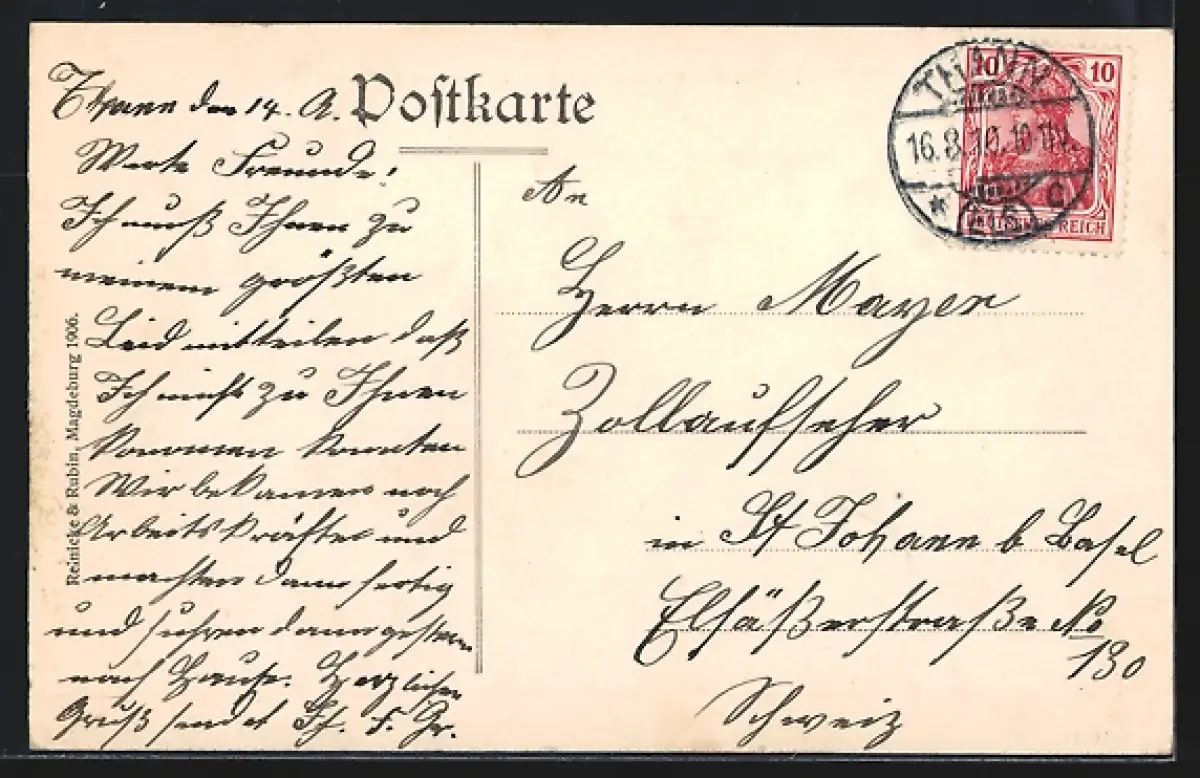 Postkarte
Thann den 14. A.
Werte Freunde!
Ich muß Ihnen zu
meinem größten
Leid mitteilen daß
Ich nicht zu Ihnen
kommen konnten
Wir bekamen noch
Arbeitskräfte und
machten dann fertig
und fuhren dann gestern
nach Hause. Herzlichen
Gruß sendet Ff. F. Gr.
Reinicke & Rubin, Magdeburg 1906.
An
Herrn Mayer
Zollaufseher
in St Johann b Basel
Elsäßerstraße No
130
Schweiz
THANN
16.8.10. 10-11V.
* (ELS) c
10 10
DEUTSCHES REICH